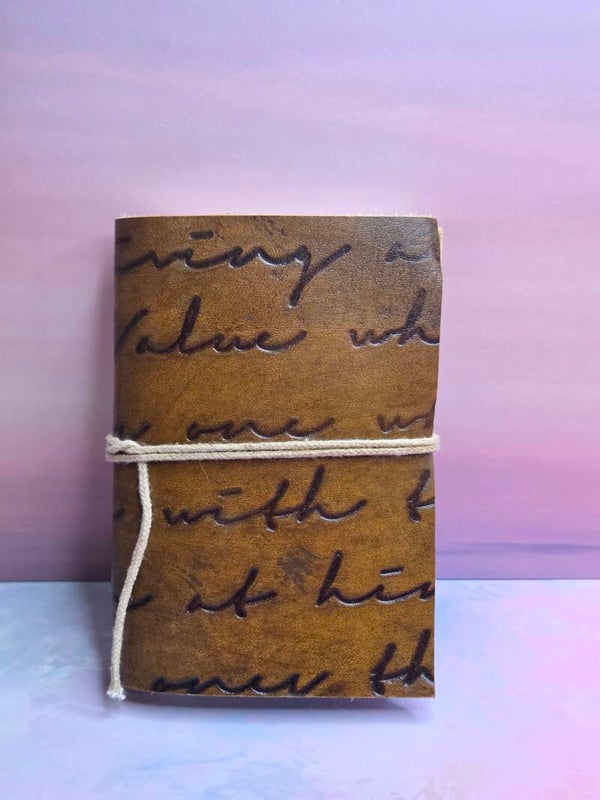 iving a
Value wh
one wh
with t
at him
over th